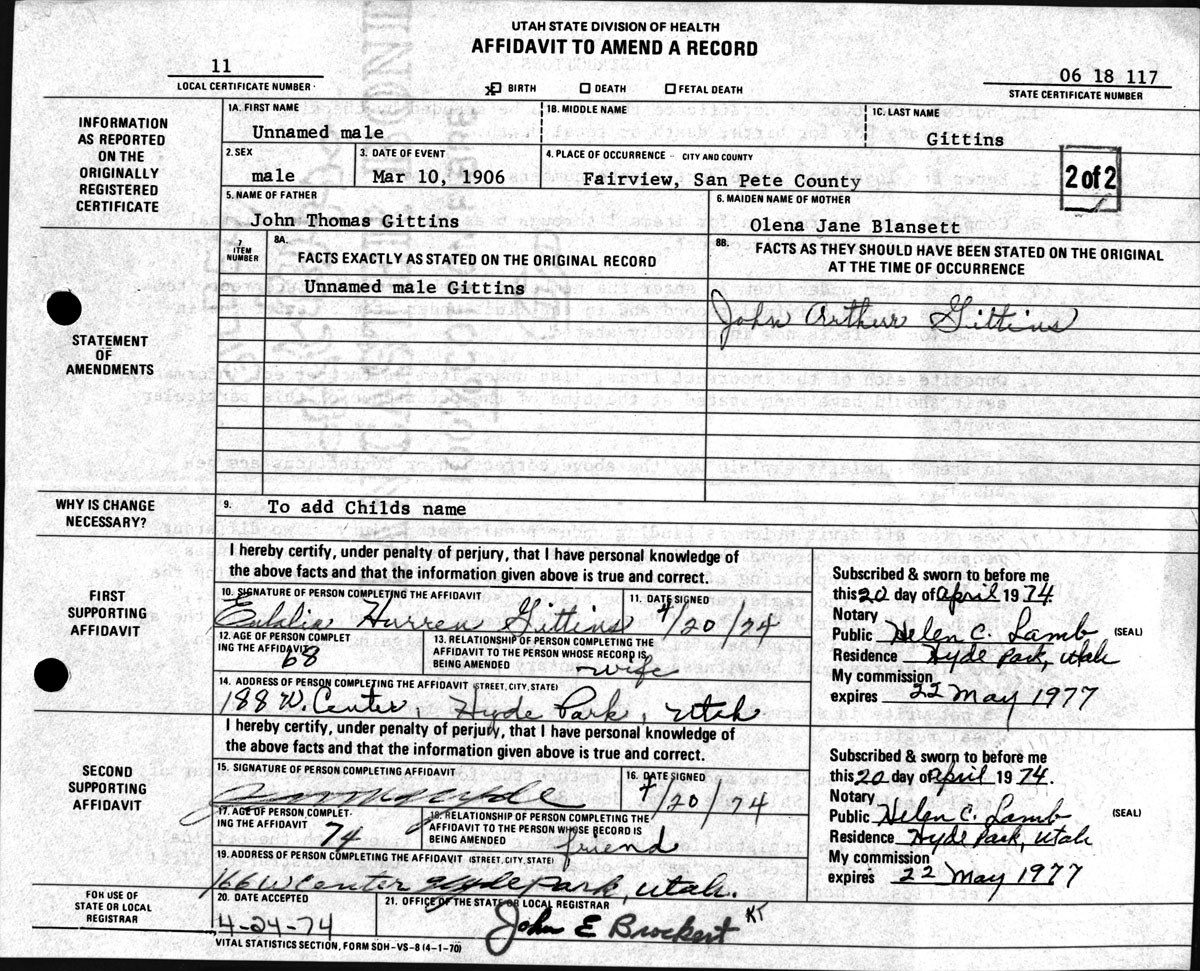 UTAH STATE DIVISION OF HEALTH
AFFIDAVIT TO AMEND A RECORD
11
LOCAL CERTIFICATE NUMBER
x BIRTH DEATH FETAL DEATH
06 18 117
STATE CERTIFICATE NUMBER
INFORMATION
AS REPORTED
ON THE
ORIGINALLY
REGISTERED
CERTIFICATE
1A. FIRST NAME
Unnamed male
1B. MIDDLE NAME
1C. LAST NAME
Gittins
2. SEX
male
3. DATE OF EVENT
Mar 10, 1906
4. PLACE OF OCCURRENCE - CITY AND COUNTY
Fairview, San Pete County
2 of 2
5. NAME OF FATHER
John Thomas Gittins
6. MAIDEN NAME OF MOTHER
Olena Jane Blansett
STATEMENT
OF
AMENDMENTS
7
ITEM
NUMBER
8A.
FACTS EXACTLY AS STATED ON THE ORIGINAL RECORD
8B.
FACTS AS THEY SHOULD HAVE BEEN STATED ON THE ORIGINAL
AT THE TIME OF OCCURRENCE
Unnamed male Gittins
John Arthur Gittins
WHY IS CHANGE
NECESSARY?
9. To add Childs name
FIRST
SUPPORTING
AFFIDAVIT
I hereby certify, under penalty of perjury, that I have personal knowledge of
the above facts and that the information given above is true and correct.
10. SIGNATURE OF PERSON COMPLETING THE AFFIDAVIT
Eulalia Hurren Gittins
11. DATE SIGNED
4/20/74
12. AGE OF PERSON COMPLET
ING THE AFFIDAVIT
68
13. RELATIONSHIP OF PERSON COMPLETING THE
AFFIDAVIT TO THE PERSON WHOSE RECORD IS
BEING AMENDED
wife
14. ADDRESS OF PERSON COMPLETING THE AFFIDAVIT (STREET, CITY, STATE)
188 W. Center, Hyde Park, Utah
Subscribed & sworn to before me
this 20 day of April 19 74.
Notary
Public Helen C. Lamb (SEAL)
Residence Hyde Park, Utah
My commission
expires 22 May 1977
SECOND
SUPPORTING
AFFIDAVIT
I hereby certify, under penalty of perjury, that I have personal knowledge of
the above facts and that the information given above is true and correct.
15. SIGNATURE OF PERSON COMPLETING AFFIDAVIT
16. DATE SIGNED
4/20/74
17. AGE OF PERSON COMPLET-
ING THE AFFIDAVIT
74
18. RELATIONSHIP OF PERSON COMPLETING THE
AFFIDAVIT TO THE PERSON WHOSE RECORD IS
BEING AMENDED
friend
19. ADDRESS OF PERSON COMPLETING THE AFFIDAVIT (STREET, CITY, STATE)
166 W Center Hyde Park, Utah.
Subscribed & sworn to before me
this 20 day of April 19 74.
Notary
Public Helen C. Lamb (SEAL)
Residence Hyde Park, Utah
My commission
expires 22 May 1977
FOR USE OF
STATE OR LOCAL
REGISTRAR
20. DATE ACCEPTED
4-24-74
21. OFFICE OF THE STATE OR LOCAL REGISTRAR
John E Brockert KT
VITAL STATISTICS SECTION, FORM SDH-VS-8 (4-1-70)